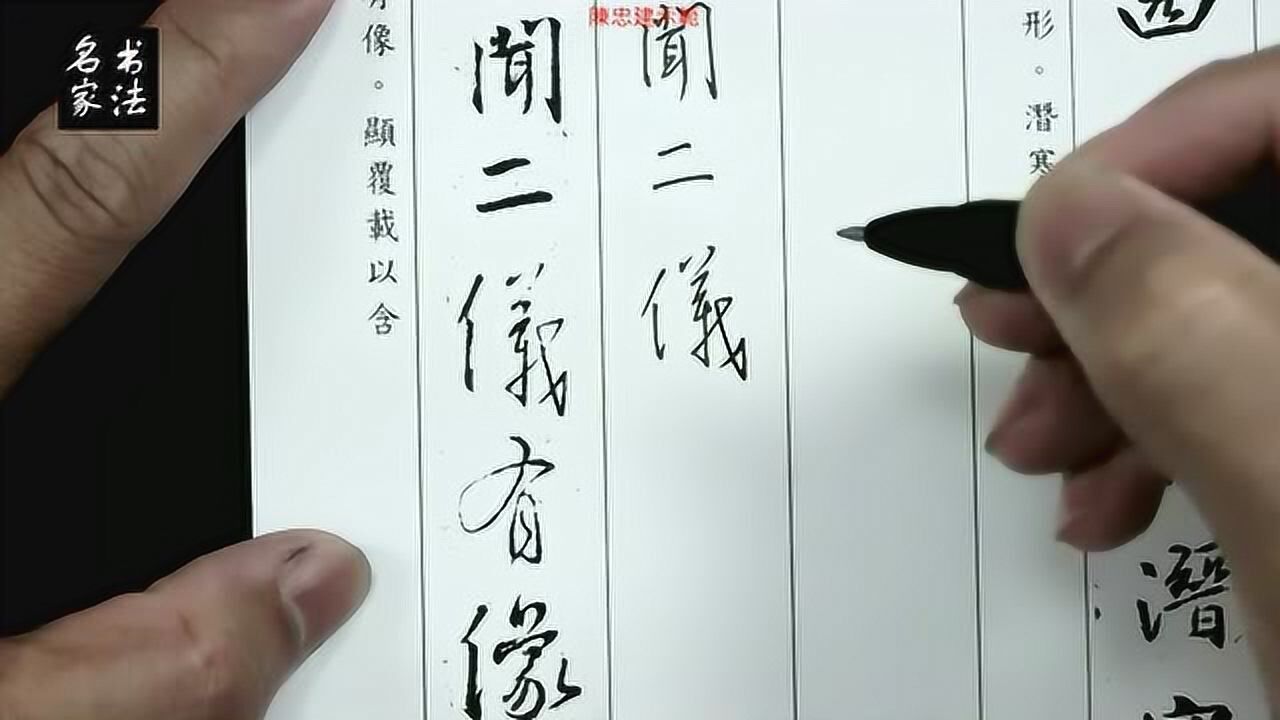 陳忠建示範
书法
名家
形。潛寒
潛
聞二儀
聞二儀有像
有像。顯覆載以含